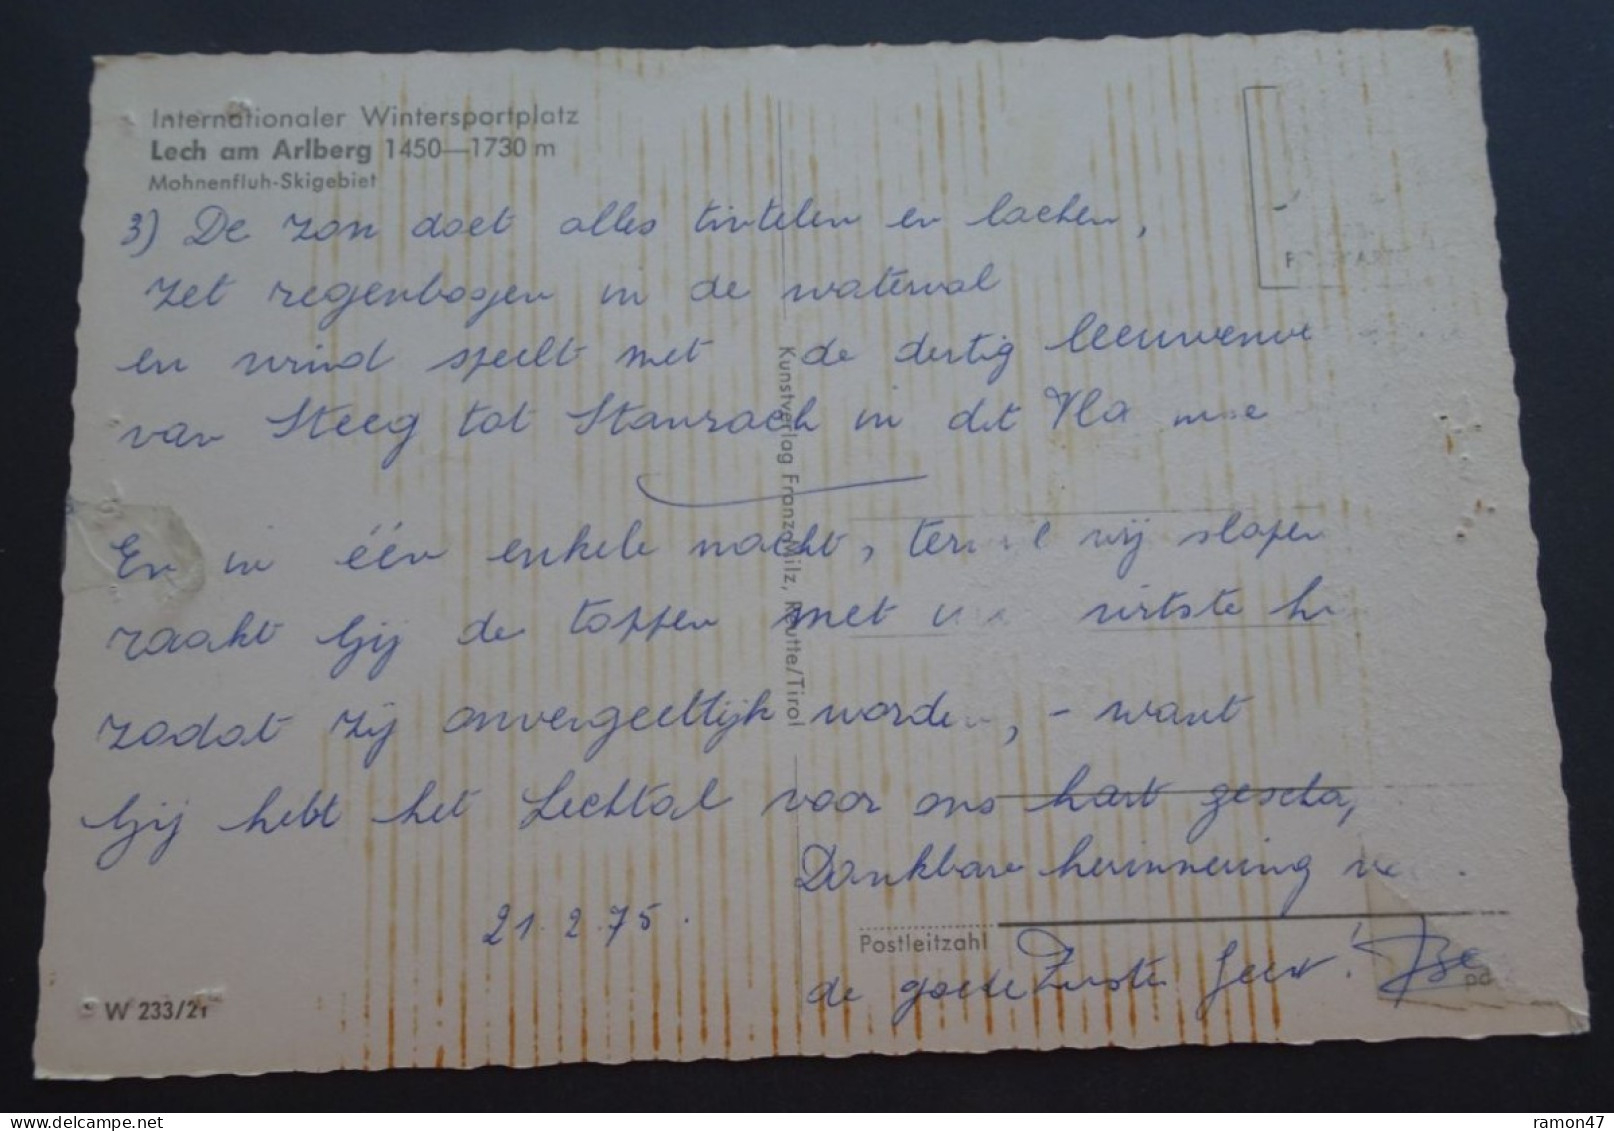 Internationaler Wintersportplatz
Lech am Arlberg 1450—1730 m
Mohnenfluh-Skigebiet
3) De zon doet alles tintelen en lachen,
zet regenbogen in de waterval
en wind speelt met de dertig
van Steeg tot Stanzach in dit
En in één enkele nacht, terwijl wij slapen
raakt Gij de toppen met
zodat zij onvergeetlijk worden, - want
Gij hebt het Lechtal voor ons hart
Dankbare herinnering
21.2.75.
de goede
Kunstverlag Franz Milz, Reutte/Tirol
Postleitzahl
W 233/21
ramon47